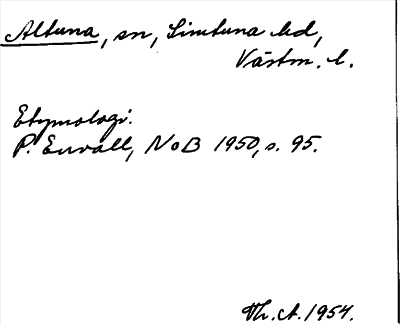 Altuna, sn, Simtuna hd,
Västm. l.
Etymologi.
P. Envall, NoB 1950, s. 95.
Th. A. 1954.